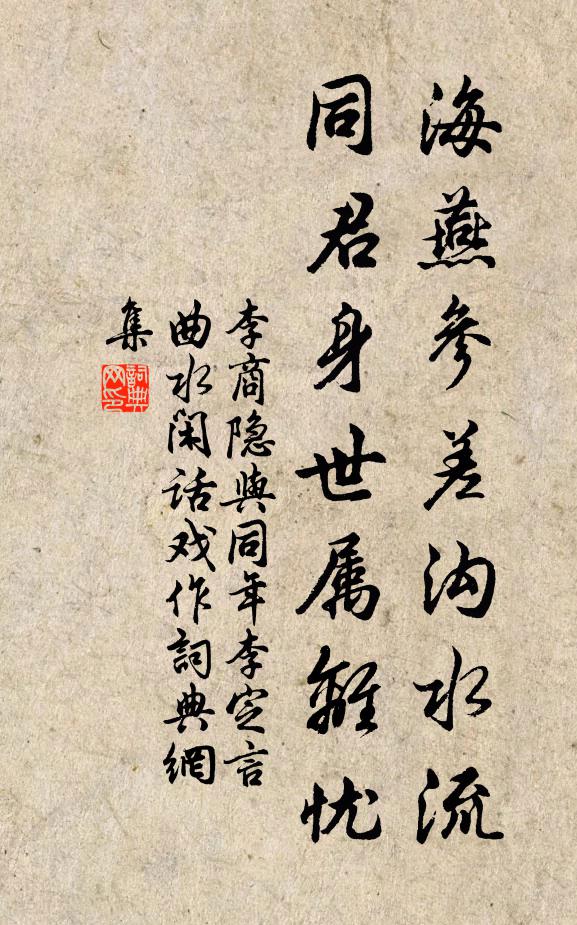 海燕参差沟水流
同君身世属離忧
李商隐與同年李定言
曲水闲话戏作詞典網
集
詞典网印